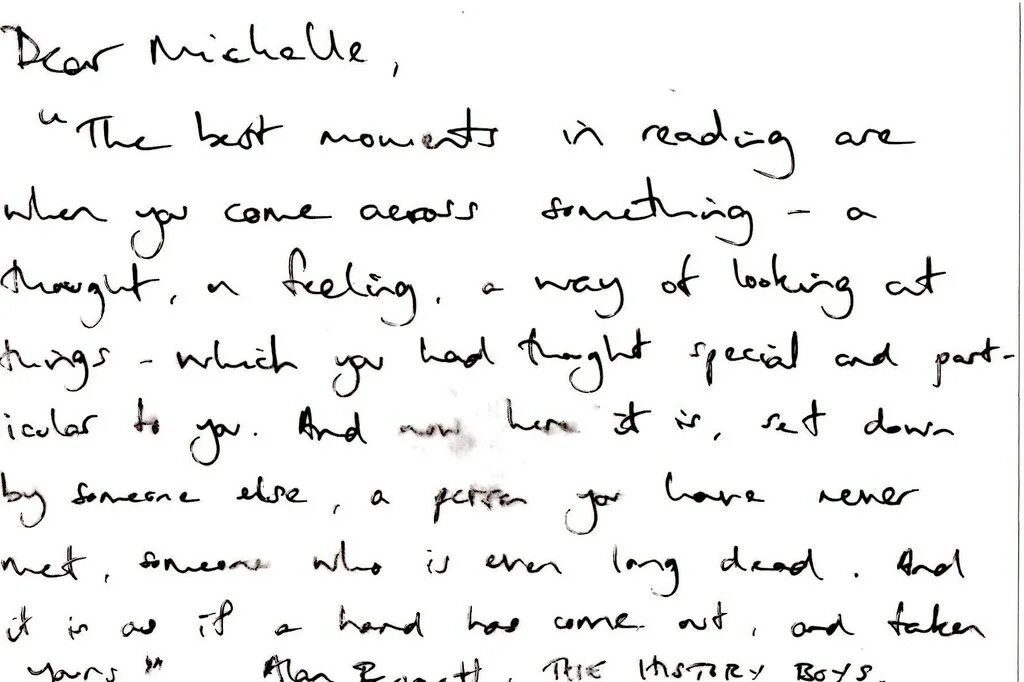 Dear Michelle,
"The best moments in reading are
when you come across something – a
thought, a feeling, a way of looking at
things – which you had thought special and part-
icular to you. And now here it is, set down
by someone else, a person you have never
met, someone who is even long dead. And
it is as if a hand has come out, and taken
yours" Alan Bennett, THE HISTORY BOYS.